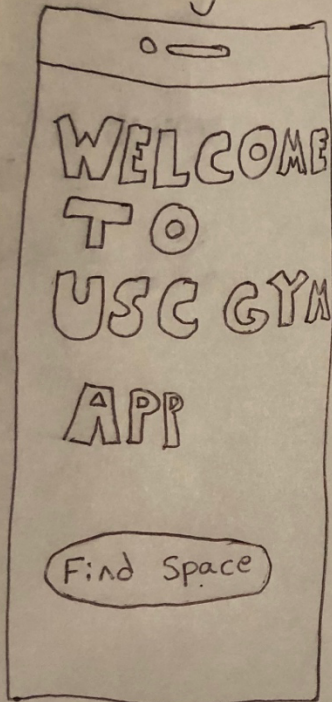 WELCOME
TO
USC GYM
APP
Find Space